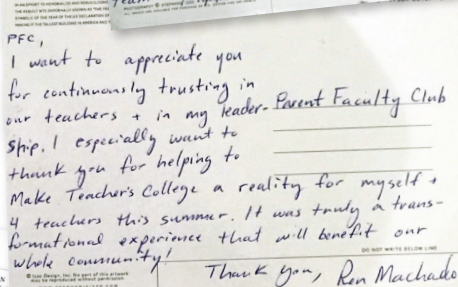 PFC,
I want to appreciate you
for continuously trusting in
our teachers + in my leader-
ship. I especially want to
thank you for helping to
Make Teacher's College a reality for myself +
4 teachers this summer. It was truly a trans-
formational experience that will benefit our
whole community!
Thank you, Ren Machado
Parent Faculty Club
DO NOT WRITE BELOW LINE
may be reproduced without permission.